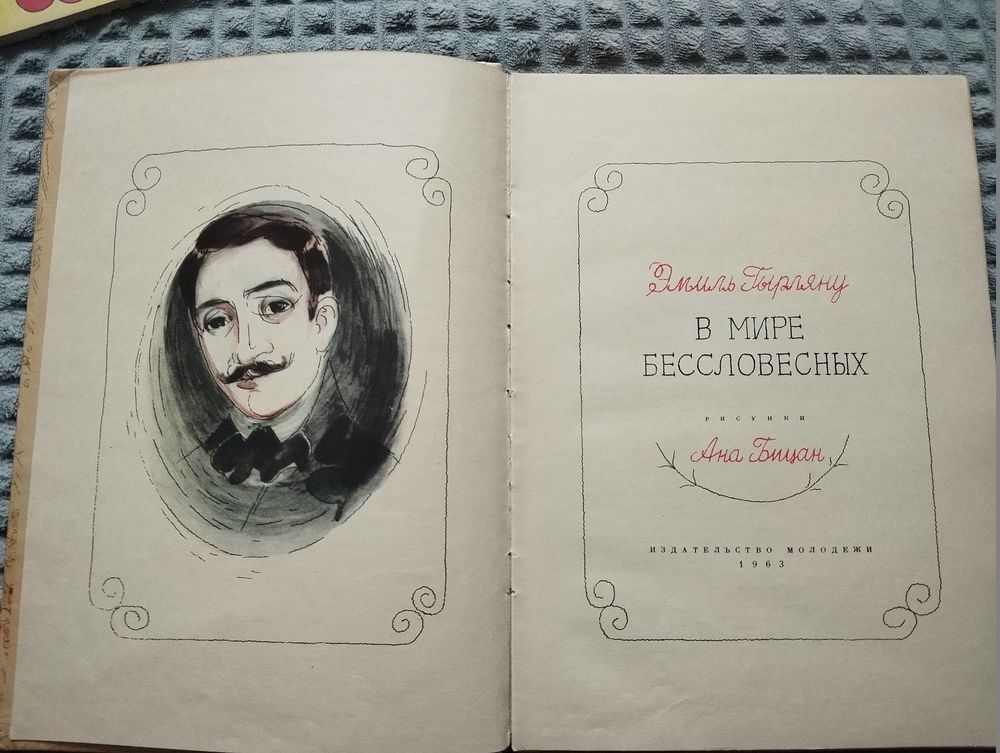 Эмиль Гырляну
В МИРЕ
БЕССЛОВЕСНЫХ
РИСУНКИ
Ана Бицан
ИЗДАТЕЛЬСТВО МОЛОДЕЖИ
1963